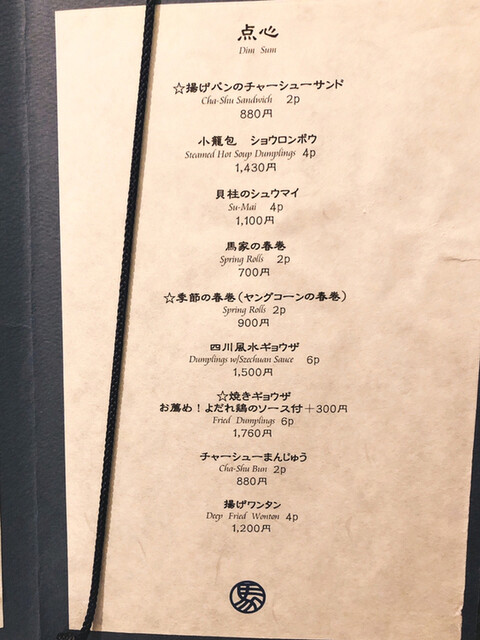 点心
Dim Sum
☆揚げパンのチャーシューサンド
Cha-Shu Sandwich 2p
880円
小籠包 ショウロンポウ
Steamed Hot Soup Dumplings 4p
1,430円
貝柱のシュウマイ
Su-Mai 4p
1,100円
馬家の春巻
Spring Rolls 2p
700円
☆季節の春巻(ヤングコーンの春巻)
Spring Rolls 2p
900円
四川風水ギョウザ
Dumplings w/Szechuan Sauce 6p
1,500円
☆焼きギョウザ
お薦め!よだれ鶏のソース付+300円
Fried Dumplings 6p
1,760円
チャーシューまんじゅう
Cha-Shu Bun 2p
880円
揚げワンタン
Deep Fried Wonton 4p
1,200円
馬